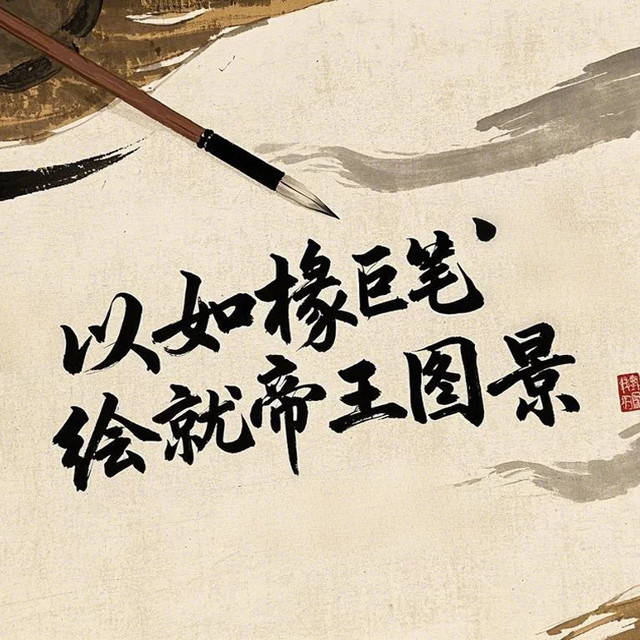 以如椽巨笔、
绘就帝王图景